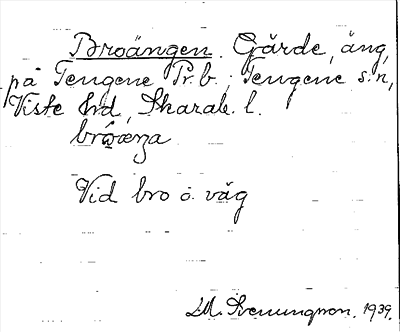 Broängen. Gärde, äng,
på Tengene Pr.b., Tengene s:n,
Viste hd, Skarab. l.
Vid bro o. väg
M. Svenungson. 1939.